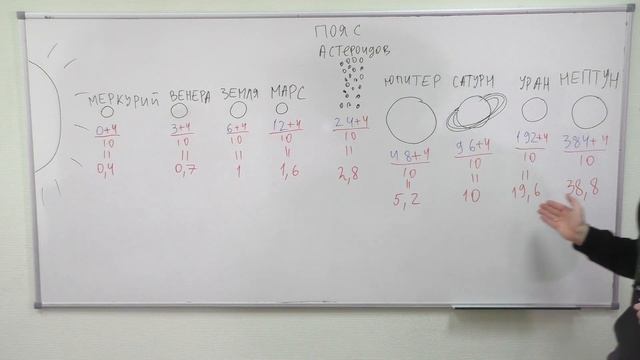 ПОЯС
АСТЕРОИДОВ
МЕРКУРИЙ ВЕНЕРА ЗЕМЛЯ МАРС ЮПИТЕР САТУРН УРАН НЕПТУН
0+4 3+4 6+4 12+4 24+4 48+4 96+4 192+4 384+4
10 10 10 10 10 10 10 10 10
= = = = = = = = =
0,4 0,7 1 1,6 2,8 5,2 10 19,6 38,8